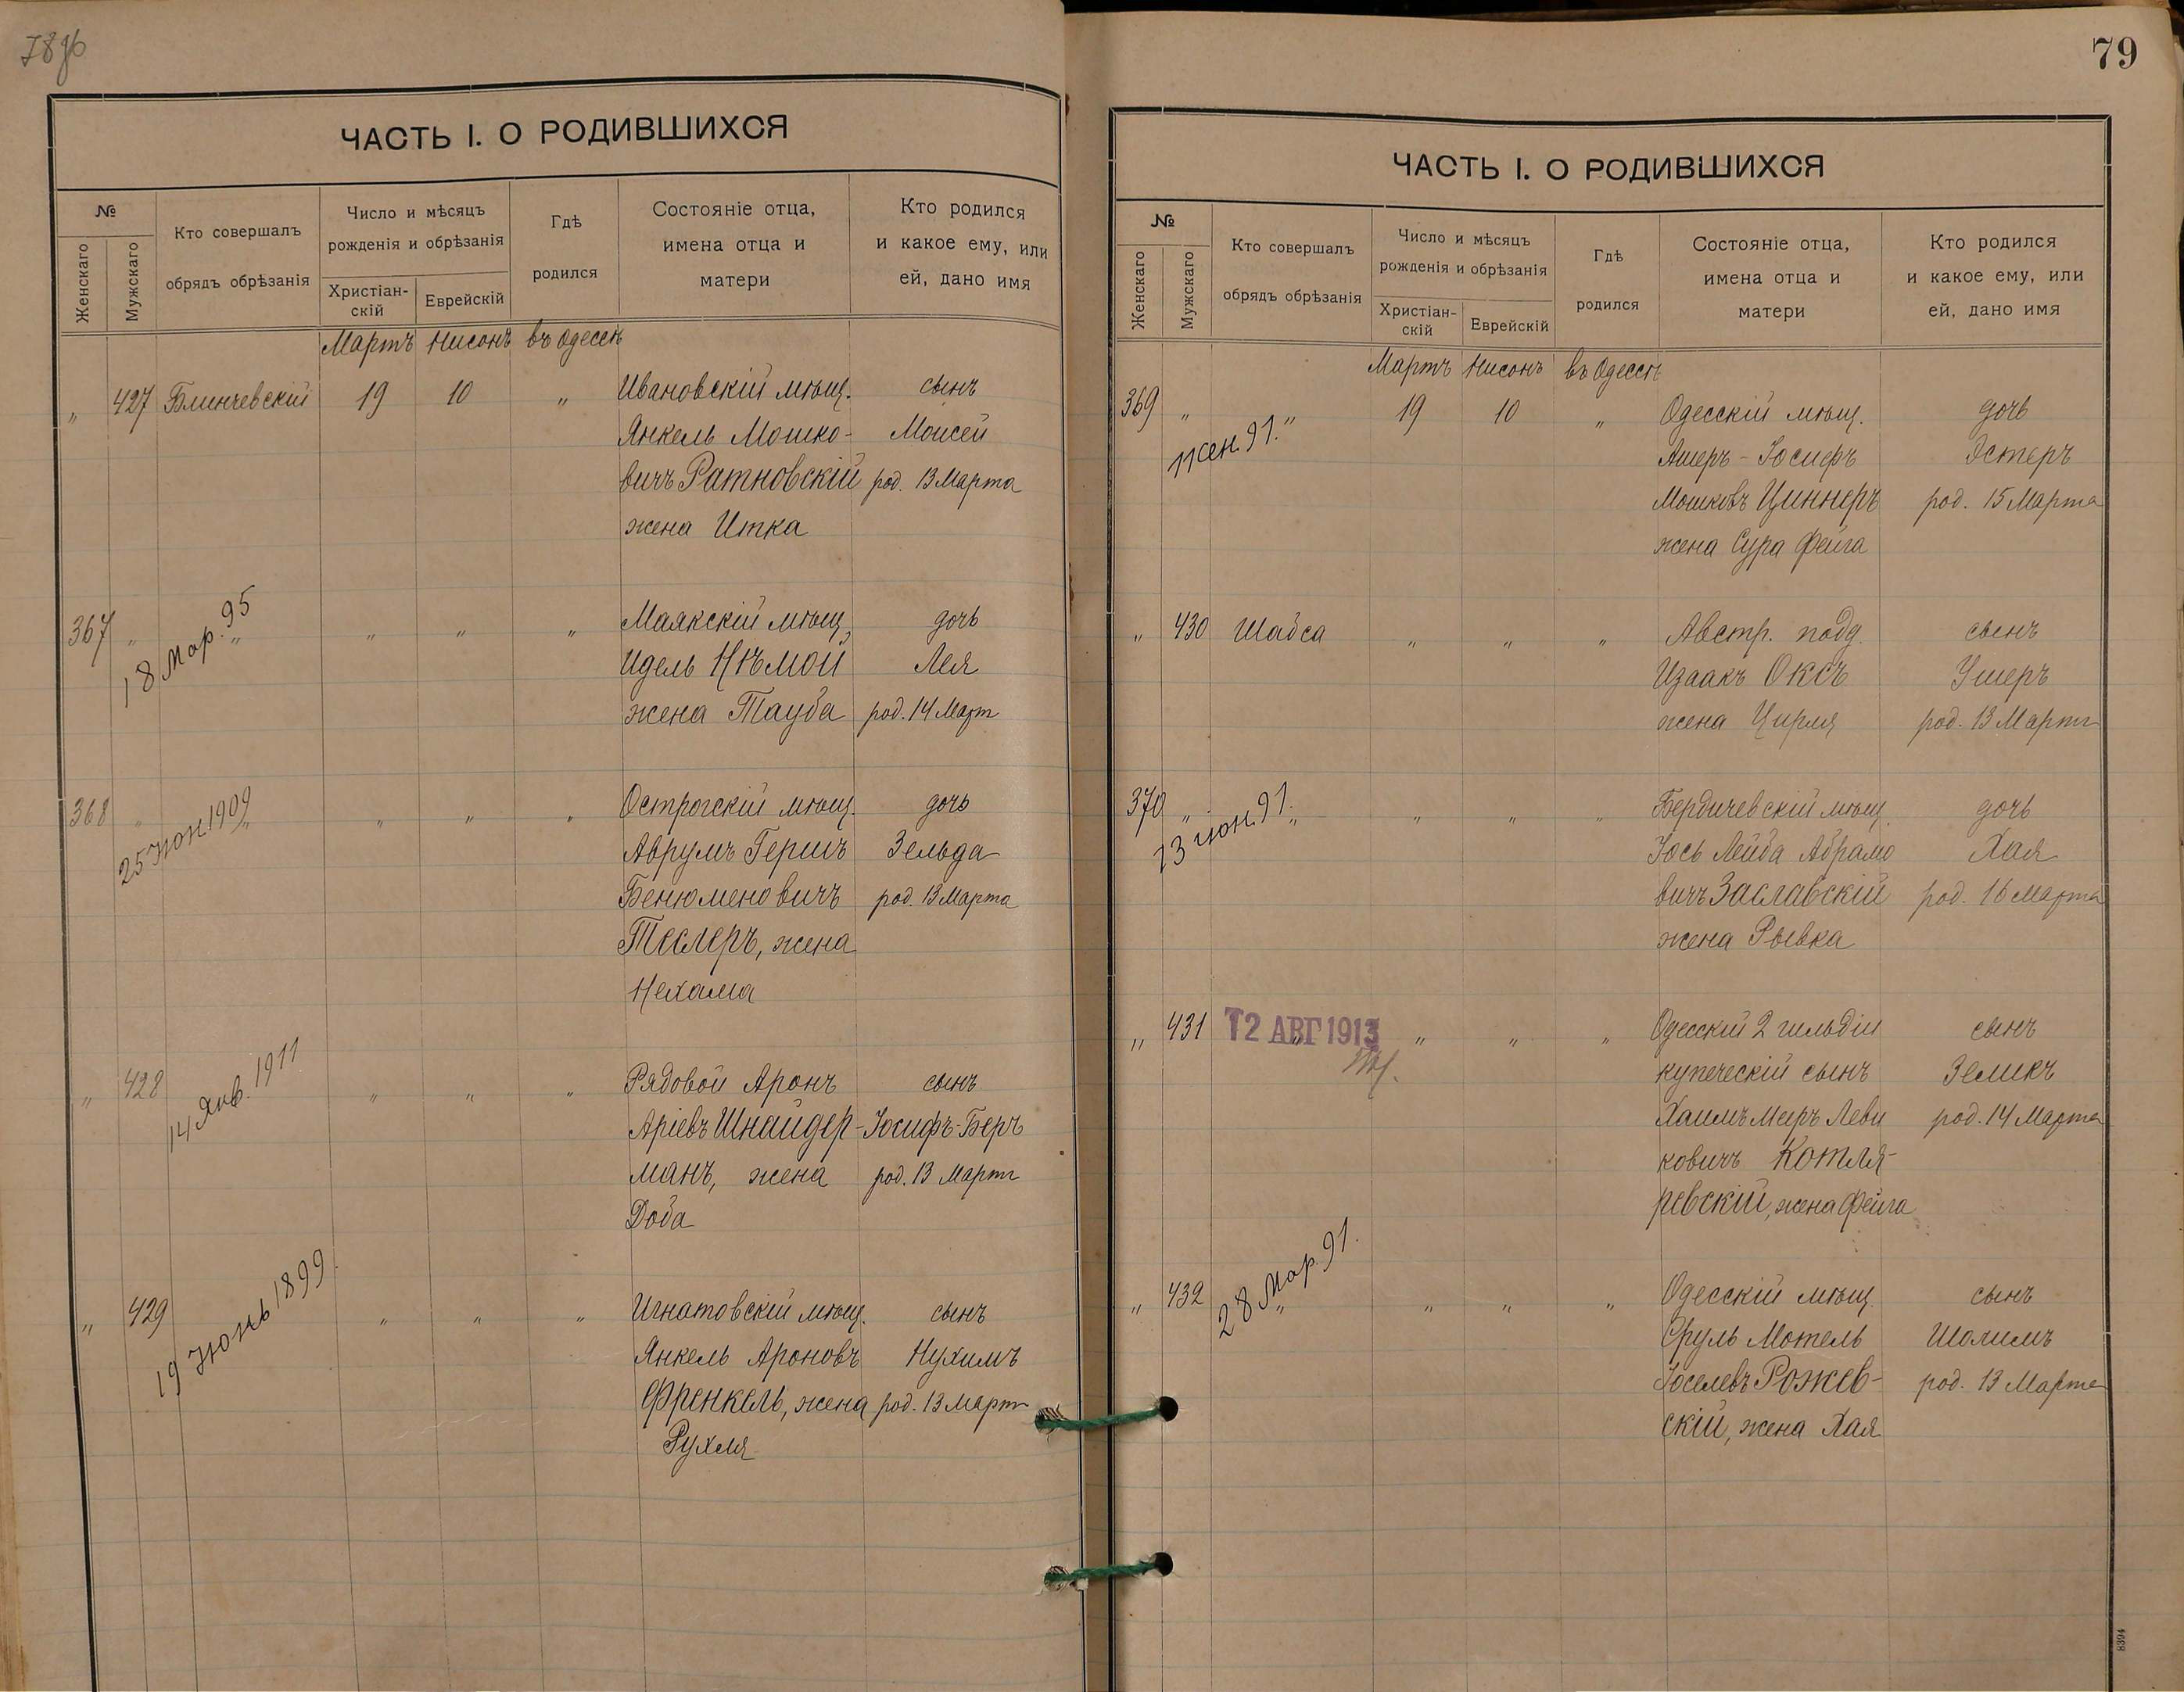 78 об
ЧАСТЬ I. О РОДИВШИХСЯ
№
Женскаго
Мужскаго
Кто совершалъ
обрядъ обрѣзанія
Число и мѣсяцъ
рожденія и обрѣзанія
Христіан-
скій
Еврейскій
Гдѣ
родился
Состояніе отца,
имена отца и
матери
Кто родился
и какое ему, или
ей, дано имя
Мартъ Нисонъ въ Одессѣ
" 427 Блинчевскій 19 10 " Ивановскій мѣщ. сынъ
Янкель Мошко- Моисей
вичъ Ратновскій род. 13 Марта
жена Итка
367 " " " " " Маякскій мѣщ. дочь
18 Мар. 95
Идель Нѣмой Лея
жена Тауба род. 14 Март
368 " " " " " Острогскій мѣщ. дочь
25 Июн 1909
Аврумъ Гершъ Зельда
Бенюменовичъ род. 13 Марта
Теслеръ, жена
Нехама
" 428 " " " Рядовой Аронъ сынъ
14 Янв. 1911
Аріевъ Шнайдер- Іосифъ-Беръ
манъ, жена род. 13 Март
Доба
" 429 " " " Игнатовскій мѣщ. сынъ
19 Июнь 1899
Янкель Ароновъ Нухимъ
Френкель, жена род. 13 Март
Рухля
79
ЧАСТЬ I. О РОДИВШИХСЯ
№
Женскаго
Мужскаго
Кто совершалъ
обрядъ обрѣзанія
Число и мѣсяцъ
рожденія и обрѣзанія
Христіан-
скій
Еврейскій
Гдѣ
родился
Состояніе отца,
имена отца и
матери
Кто родился
и какое ему, или
ей, дано имя
Мартъ Нисонъ въ Одессѣ
369 " " 19 10 " Одесскій мѣщ. дочь
11 сен. 91.
Ашеръ-Іосифъ Эстеръ
Мошковъ Циннеръ род. 15 Марта
жена Сура Фейга
" 430 Шабса " " " Австр. подд. сынъ
Изаакъ Оксъ Ушеръ
жена Цирля род. 13 Март
370 " " " " " Бердичевскій мѣщ. дочь
13 июн. 91.
Іось Лейба Абрамо Хая
вичъ Заславскій род. 16 Марта
жена Рывка
" 431 " " " " Одесскій 2 гильдіи сынъ
12 АВГ 1913
купеческій сынъ Зеликъ
Хаимъ Меръ Леви род. 14 Марта
ковичъ Котля-
ревскій, жена Фейга
" 432 " " " " Одесскій мѣщ. сынъ
28 Мар. 91.
Сруль Мотель Шолимъ
Іоселевъ Рожев- род. 13 Марта
скій, жена Хая
8394